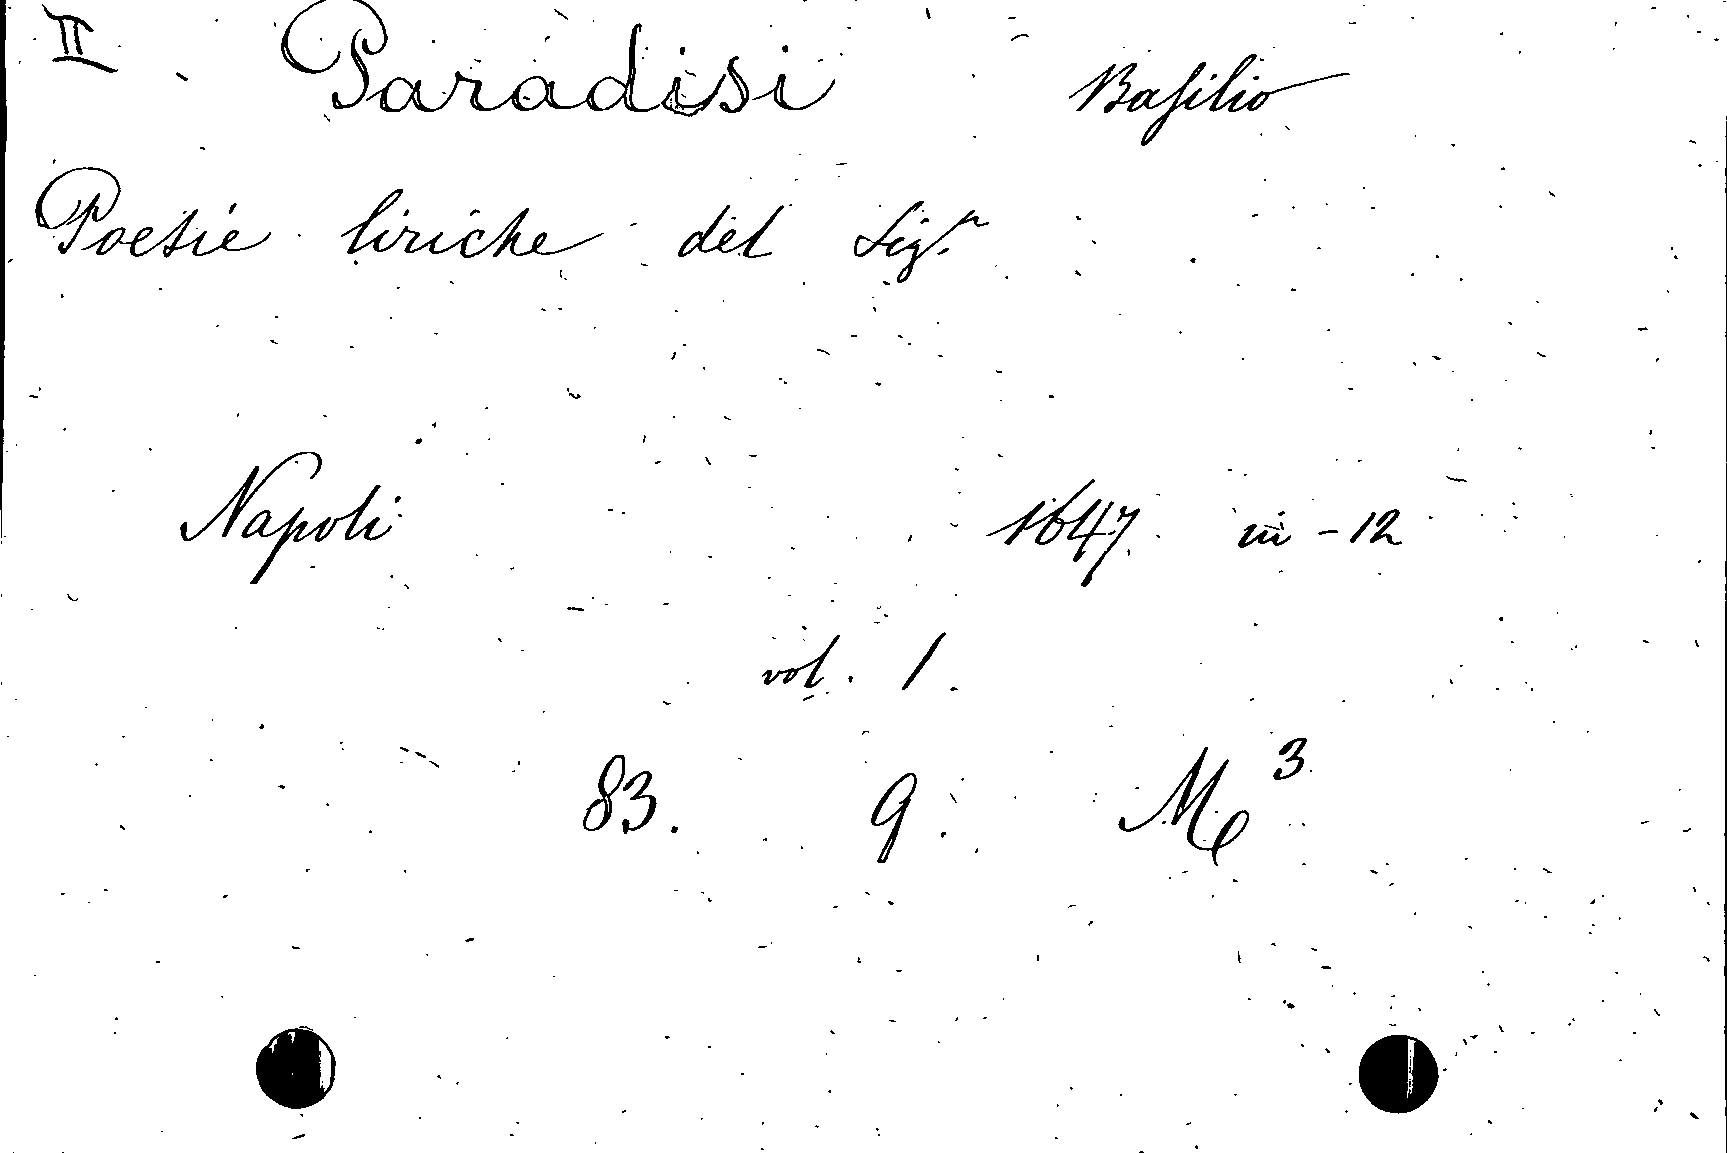 II Paradisi Basilio
Poesie liriche del Sig.r
Napoli 1647. in-12
vol. 1.
83. 9. M 3